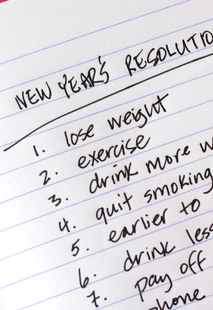 NEW YEAR'S RESOLUTIO
1. lose weight
2. exercise
3. drink more w
4. quit smoking
5. earlier to
6. drink less
7. pay off
phone